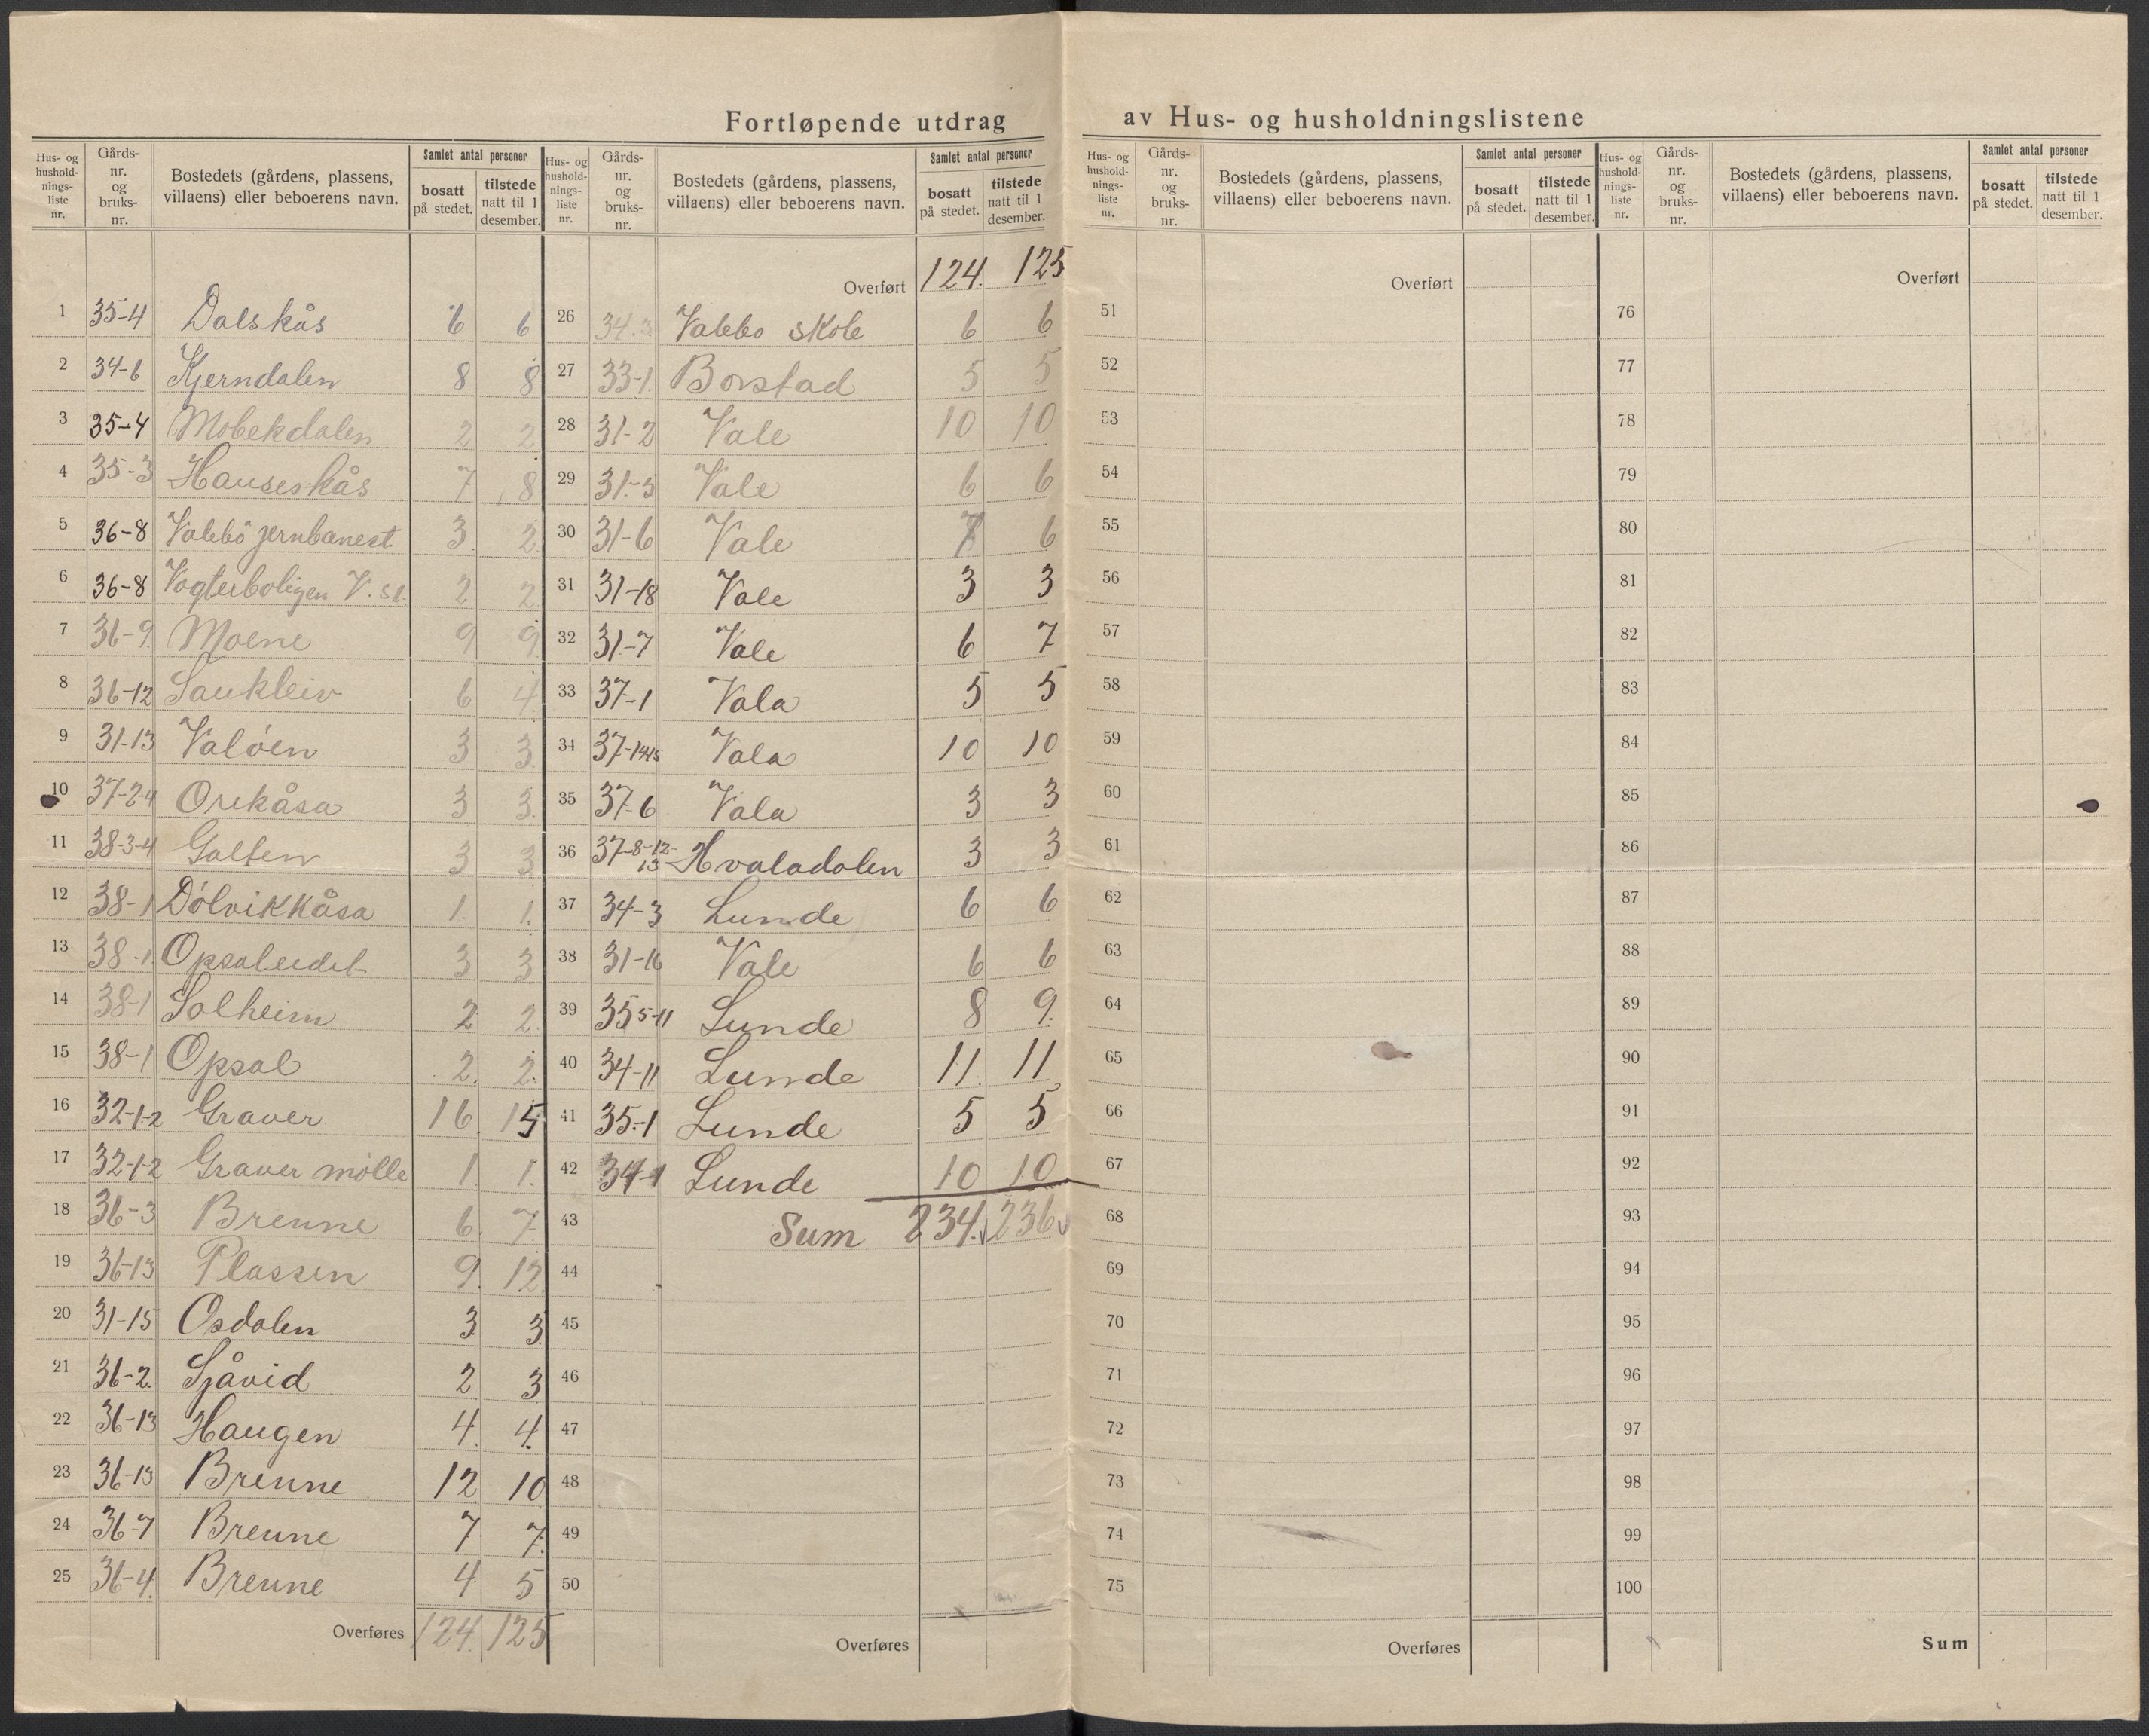 Fortløpende utdrag av Hus- og husholdningslistene
Hus- og hushold-nings-liste nr. Gårds-nr. og bruks-nr. Bostedets (gårdens, plassens, villaens) eller beboerens navn. Samlet antal personer bosatt på stedet. tilstede natt til 1 desember.
1 35-4 Dalskås 6 6
2 34-6 Kjerndalen 8 8
3 35-4 Mobekdalen 2 2
4 35-3 Hauseskås 7 8
5 36-8 Valebö jernbanest. 3 2
6 36-8 Vogterboligen V. st. 2 2
7 36-9 Moene 9 9
8 36-12 Saukleiv 6 4
9 31-13 Valöen 3 3
10 37-2-4 Orekåsa 3 3
11 38-3-4 Galten 3 3
12 38-1 Dölvikkåsa 1 1
13 38-1 Opsaleidet 3 3
14 38-1 Solheim 2 2
15 38-1 Opsal 2 2
16 32-1-2 Graver 16 15
17 32-1-2 Graver mölle 1 1
18 36-3 Brenne 6 7
19 36-13 Plassen 9 12
20 31-15 Osdalen 3 3
21 36-2 Sjåvid 2 3
22 36-13 Haugen 4 4
23 36-13 Brenne 12 10
24 36-7 Brenne 7 7
25 36-4 Brenne 4 5
Overføres 124 125
Hus- og hushold-nings-liste nr. Gårds-nr. og bruks-nr. Bostedets (gårdens, plassens, villaens) eller beboerens navn. Samlet antal personer bosatt på stedet. tilstede natt til 1 desember.
Overført 124 125
26 34-3 Valebo skole 6 6
27 33-1 Borstad 5 5
28 31-2 Vale 10 10
29 31-3 Vale 6 6
30 31-6 Vale 7 6
31 31-18 Vale 3 3
32 31-7 Vale 6 7
33 37-1 Vala 5 5
34 37-1415 Vala 10 10
35 37-6 Vala 3 3
36 37-8-12-13 Hvaladalen 3 3
37 34-3 Lunde 6 6
38 31-16 Vale 6 6
39 35 5-11 Lunde 8 9
40 34-11 Lunde 11 11
41 35-1 Lunde 5 5
42 34-1 Lunde 10 10
43 Sum 234 236
44
45
46
47
48
49
50
Overføres
Hus- og hushold-nings-liste nr. Gårds-nr. og bruks-nr. Bostedets (gårdens, plassens, villaens) eller beboerens navn. Samlet antal personer bosatt på stedet. tilstede natt til 1 desember.
Overført
51
52
53
54
55
56
57
58
59
60
61
62
63
64
65
66
67
68
69
70
71
72
73
74
75
Overføres
Hus- og hushold-nings-liste nr. Gårds-nr. og bruks-nr. Bostedets (gårdens, plassens, villaens) eller beboerens navn. Samlet antal personer bosatt på stedet. tilstede natt til 1 desember.
Overført
76
77
78
79
80
81
82
83
84
85
86
87
88
89
90
91
92
93
94
95
96
97
98
99
100
Sum